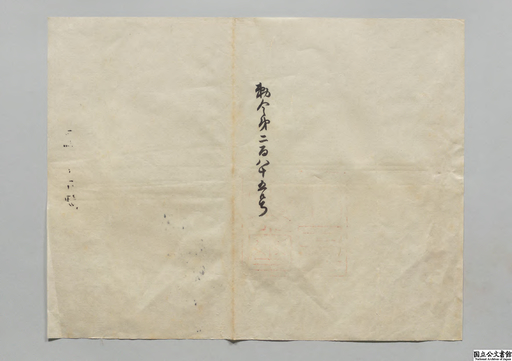 勅令第二百八十五号
国立公文書館
National Archives of Japan